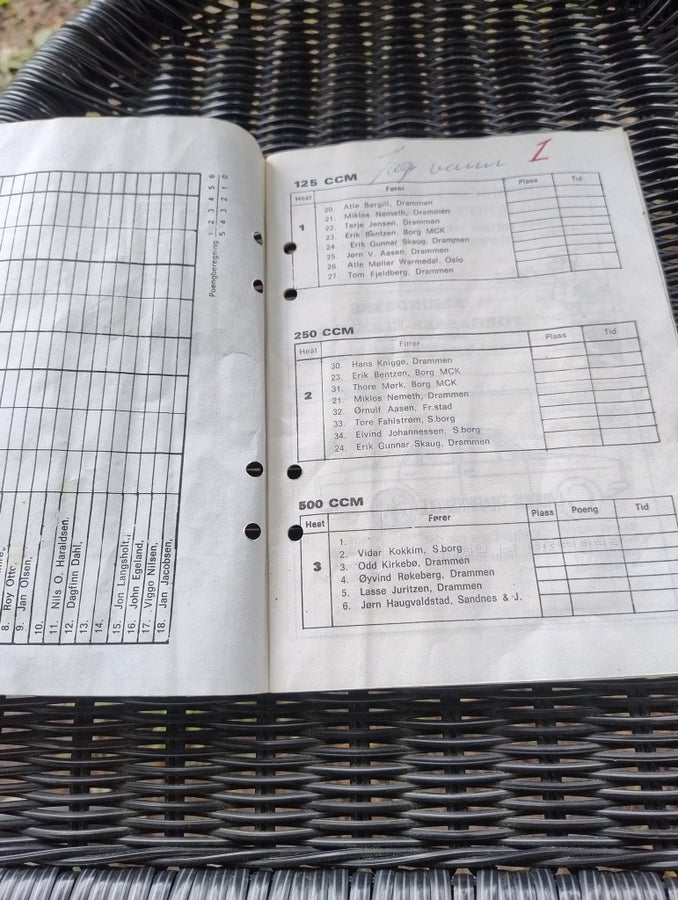 Poengberegning 1 2 3 4 5 6
5 4 3 2 1 0
8. Roy
9. Jan Olsen,
10.
11. Nils O. Haraldsen,
12. Dagfinn Dahl,
13.
14.
15. Jon Langsholt,
16. John Egeland,
17. Viggo Nilsen,
18. Jan Jacobsen,
Jeg vann 1
125 CCM
Heat Fører Plass Tid
1
20. Atle Bergill, Drammen
21. Miklos Nemeth, Drammen
22. Terje Jensen, Drammen
23. Erik Bentzen, Borg MCK
24. Erik Gunnar Skaug, Drammen
25. Jørn V. Aasen, Drammen
26. Atle Møller Warmedal, Oslo
27. Tom Fjeldberg, Drammen
250 CCM
Heat Fører Plass Tid
2
30. Hans Knigge, Drammen
23. Erik Bentzen, Borg MCK
31. Thore Mørk, Borg MCK
21. Miklos Nemeth, Drammen
32. Ørnulf Aasen, Fr.stad
33. Tore Fahlstrøm, S.borg
34. Eivind Johannessen, S.borg
24. Erik Gunnar Skaug, Drammen
500 CCM
Heat Fører Plass Poeng Tid
3
1.
2. Vidar Kokkim, S.borg
3. Odd Kirkebø, Drammen
4. Øyvind Røkeberg, Drammen
5. Lasse Juritzen, Drammen
6. Jørn Haugvaldstad, Sandnes & J.